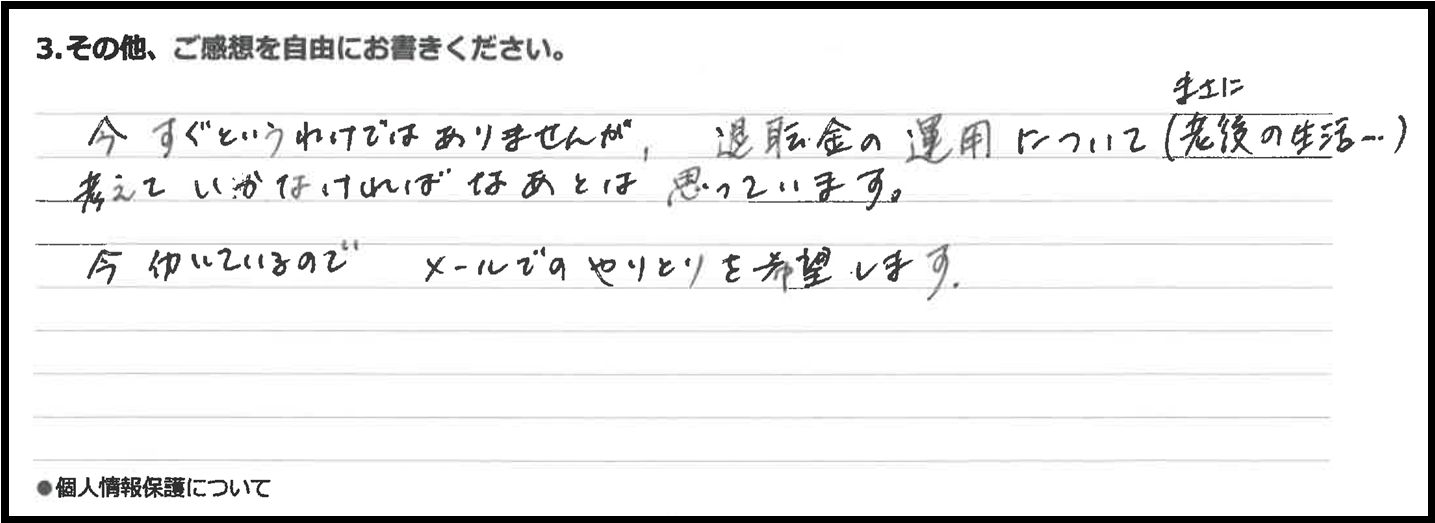 3.その他、ご感想を自由にお書きください。
まさに
今すぐというわけではありませんが、退転金の運用について(老後の生活…)
考えていかなければなあとは思っています。
今働いているので メールでのやりとりを希望します.
●個人情報保護について